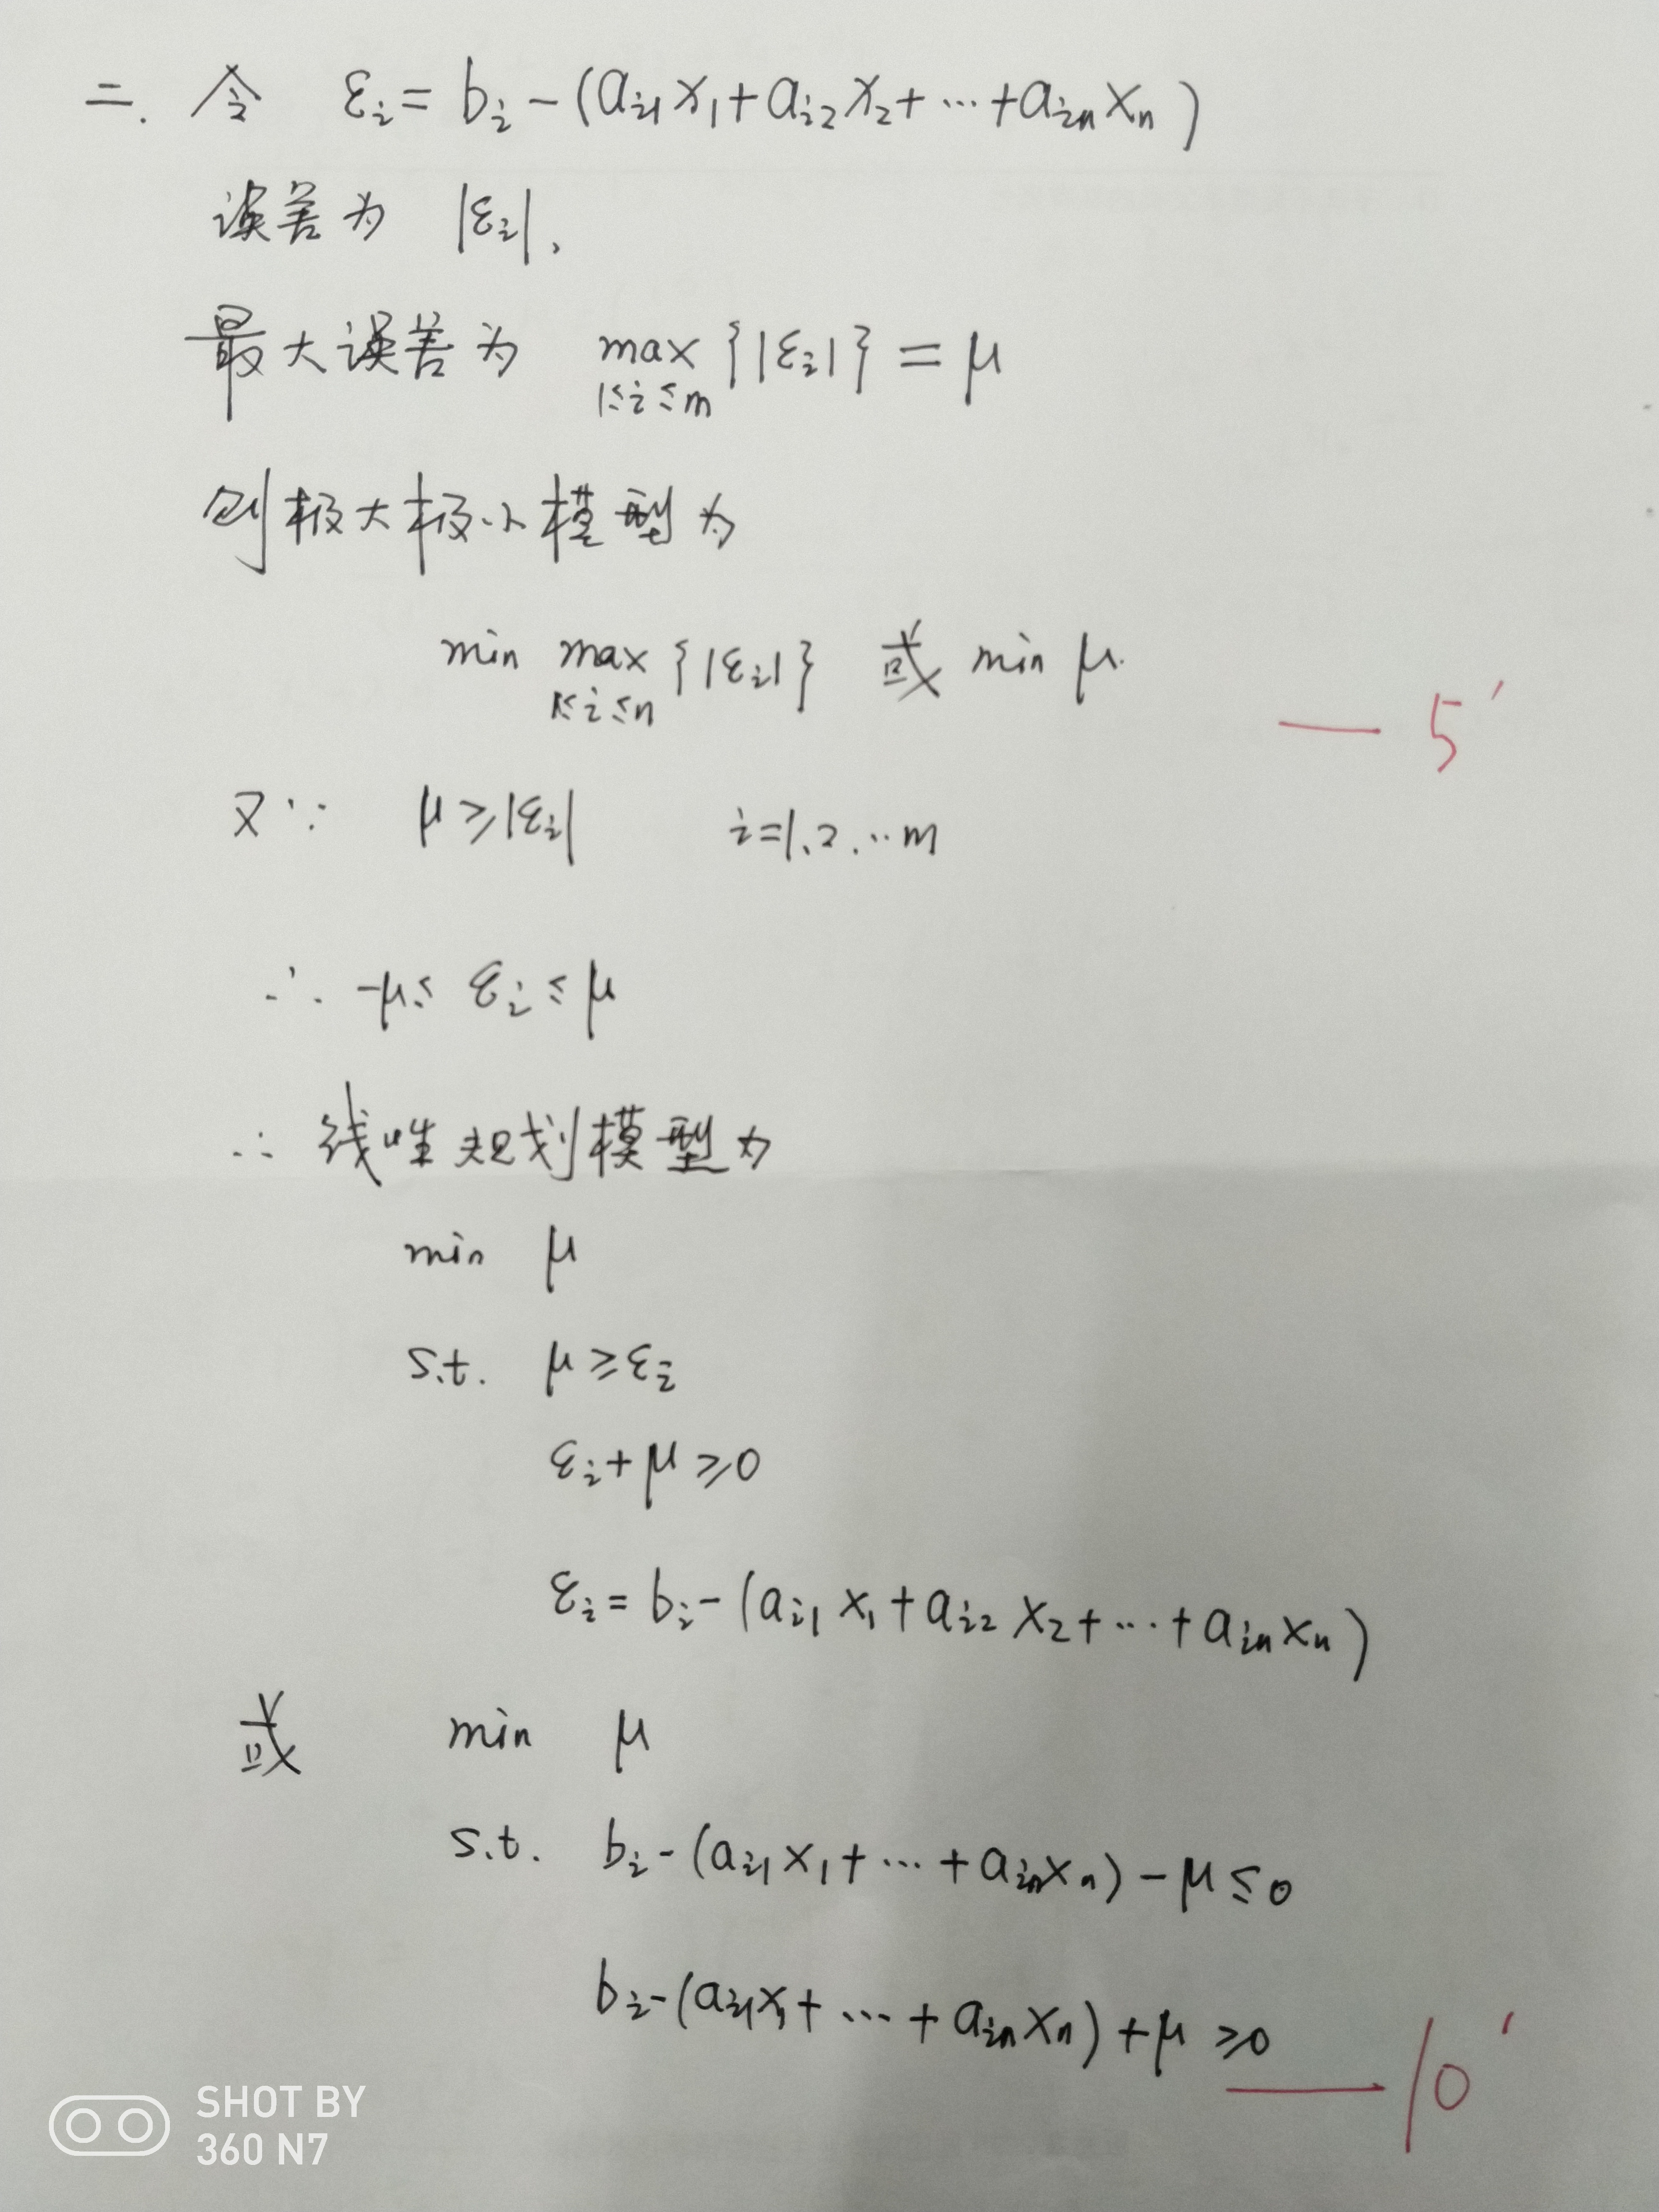 二. 令 εᵢ = bᵢ - (aᵢ₁x₁ + aᵢ₂x₂ + ··· + aᵢₙxₙ)
误差为 |εᵢ|,
最大误差为 max {|εᵢ|} = μ
1≤i≤m
则极大极小模型为
min max {|εᵢ|} 或 min μ.
1≤i≤n
— 5′
又∵ μ ≥ |εᵢ| i=1.2.…m
∴ -μ ≤ εᵢ ≤ μ
∴ 线性规划模型为
min μ
s.t. μ ≥ εᵢ
εᵢ + μ ≥ 0
εᵢ = bᵢ - (aᵢ₁x₁ + aᵢ₂x₂ + ··· + aᵢₙxₙ)
或 min μ
s.t. bᵢ - (aᵢ₁x₁ + ··· + aᵢₙxₙ) - μ ≤ 0
bᵢ - (aᵢ₁x₁ + ··· + aᵢₙxₙ) + μ ≥ 0
— 10′
SHOT BY
360 N7